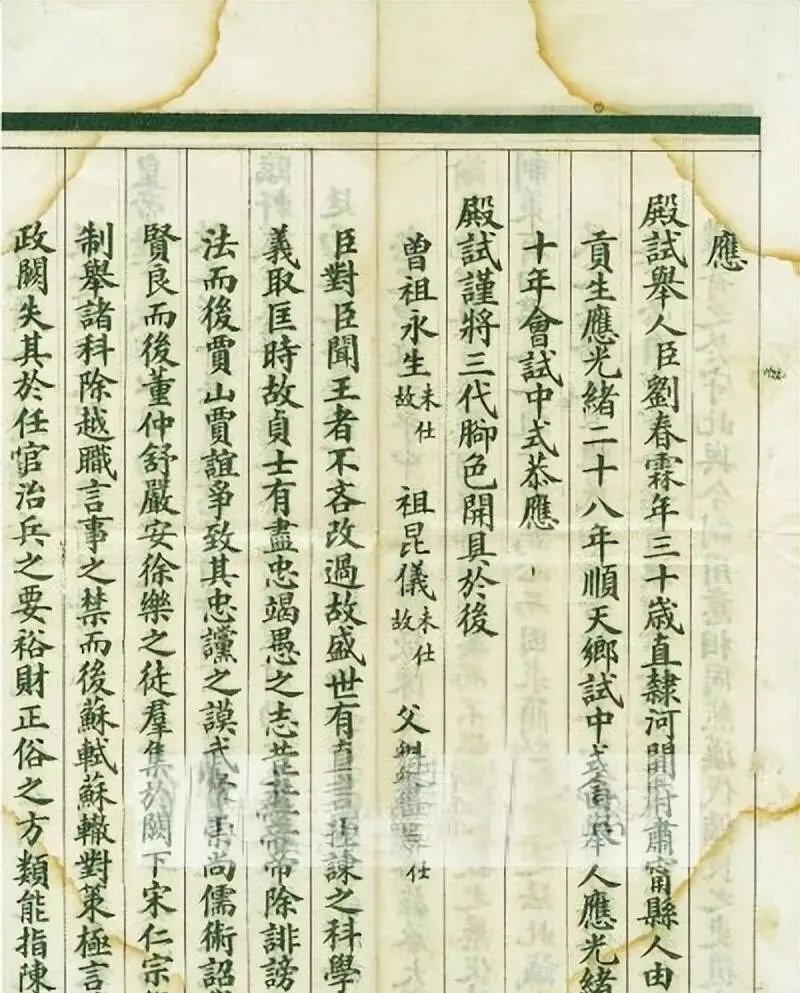 應
殿試舉人臣劉春霖年三十歲直隸河間府肅甯縣人由
貢生應光緒二十八年順天鄉試中式由舉人應光緒
十年會試中式恭應
殿試謹將三代腳色開具於後
曾祖永生未仕故 祖昆儀未仕故 父 仕
臣對臣聞王者不吝改過故盛世有直言極諫之科學
義取匡時故貞士有盡忠竭愚之志 帝除誹謗
法而後賈山賈誼爭致其忠讜之謨武帝崇尚儒術詔
賢良而後董仲舒嚴安徐樂之徒羣集於闕下宋仁宗
制舉諸科除越職言事之禁而後蘇軾蘇轍對策極言
政闕失其於任官治兵之要裕財正俗之方類能指陳